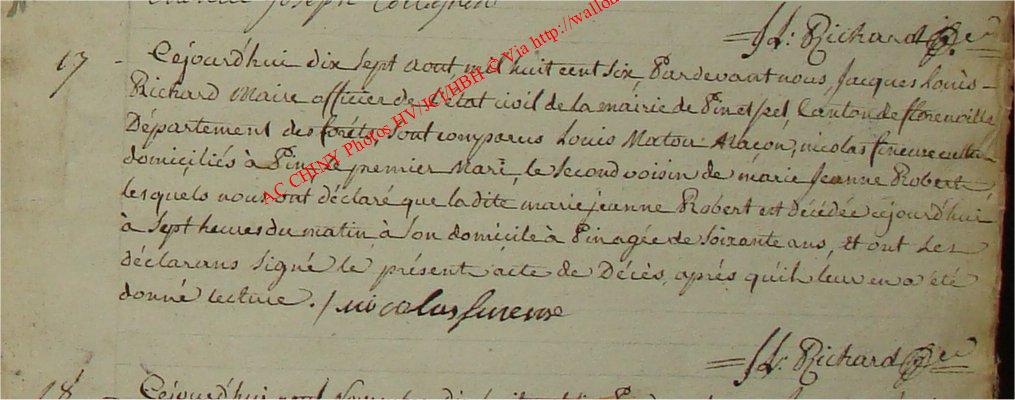 Joseph
J L: Richard
17 - Cejourd'hui dix sept aout mil huit cent six Pardevant nous, Jacques Louis -
Richard Maire officier de l'état civil de la mairie de Pin et Izel, Canton de florenville
Département des forêts, sont comparus Louis Matou Maçon, nicolas
domiciliés à Pin, le premier Mari, le second voisin de marie Jeanne Robert
lesquels nous ont déclaré que la dite marie jeanne Robert est décédée cejourd'hui
à sept heures du matin à son domicile à Pin agée de soixante ans, et ont les
déclarans signé le présent acte de Décès, après qu'il leur en a été
donné lecture. / nicolas
J L: Richard
18 - Cejourd'hui
AC CHINY Photos HV/JCl/HBH © Via http://wallo